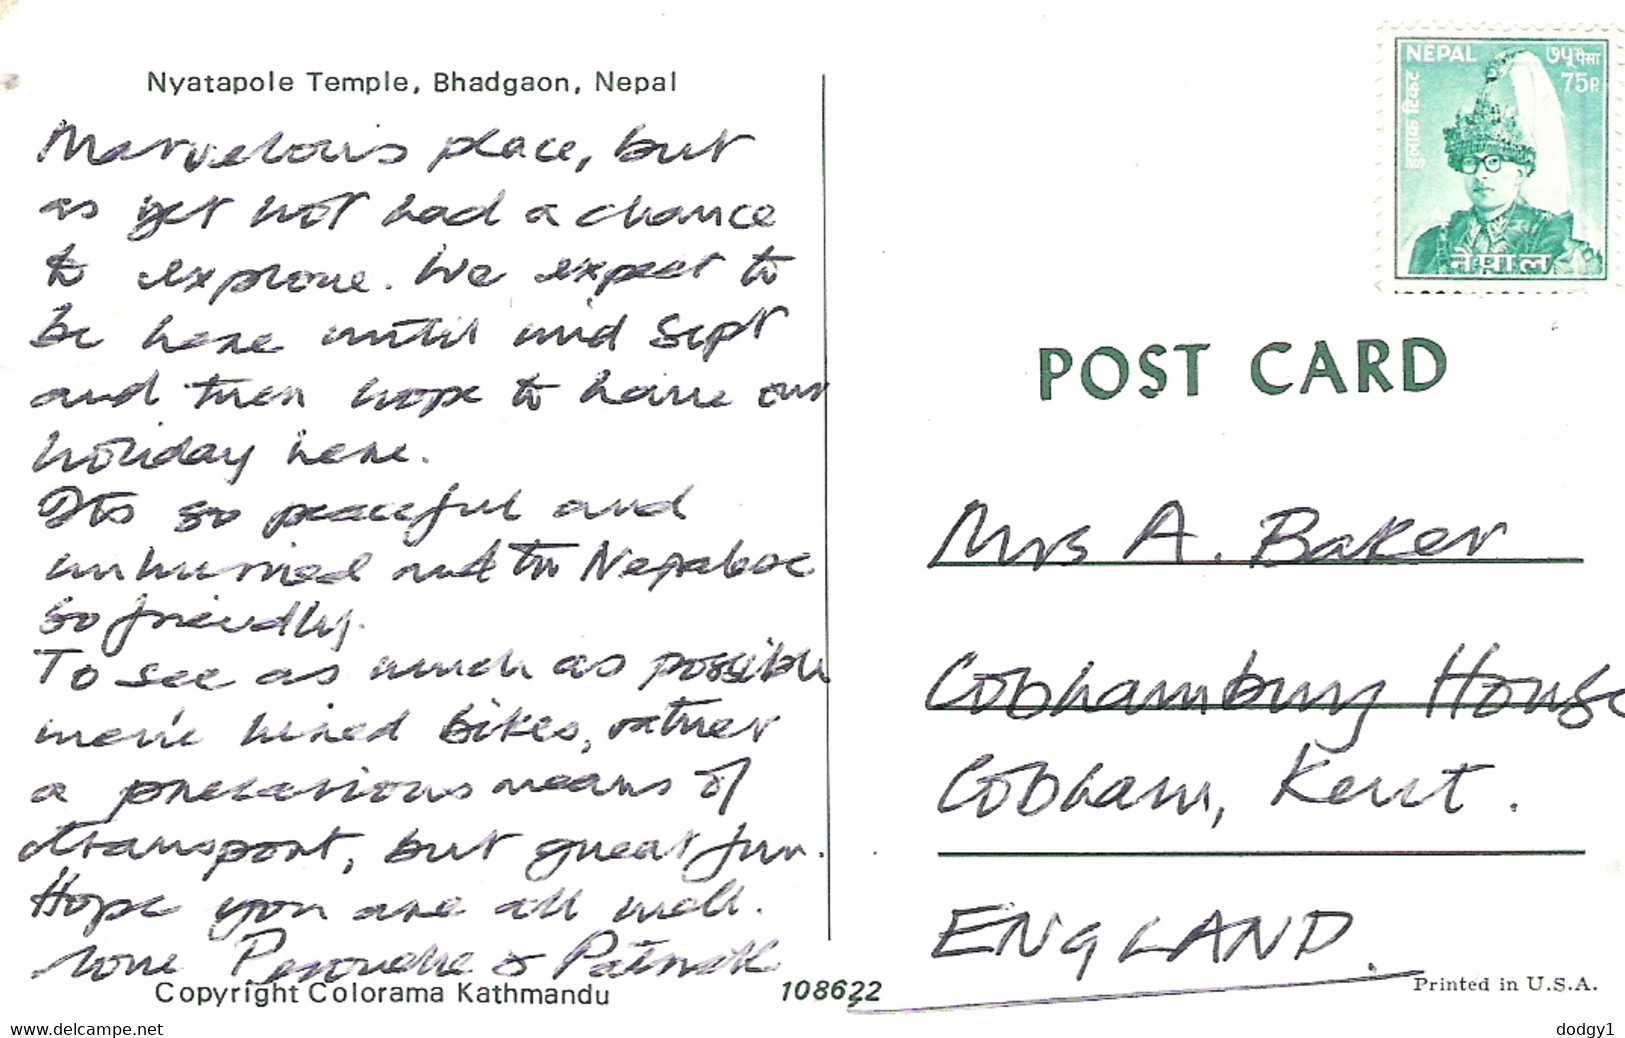 Nyatapole Temple, Bhadgaon, Nepal
Marvelous place, but
as yet not had a chance
to explore. We expect to
be here until mid Sept
and then hope to have our
holiday here.
Its so peaceful and
unhurried and the Nepalese
so friendly.
To see as much as possible
we've hired bikes, rather
a precarious means of
transport, but great fun.
Hope you are all well.
love & Patrick
Copyright Colorama Kathmandu
108622
NEPAL
७५ पैसा
75P.
हुलाक टिकट
नेपाल
POST CARD
Mrs A. Baker
Cobhambury House
Cobham, Kent.
ENGLAND.
Printed in U.S.A.
www.delcampe.net
dodgy1